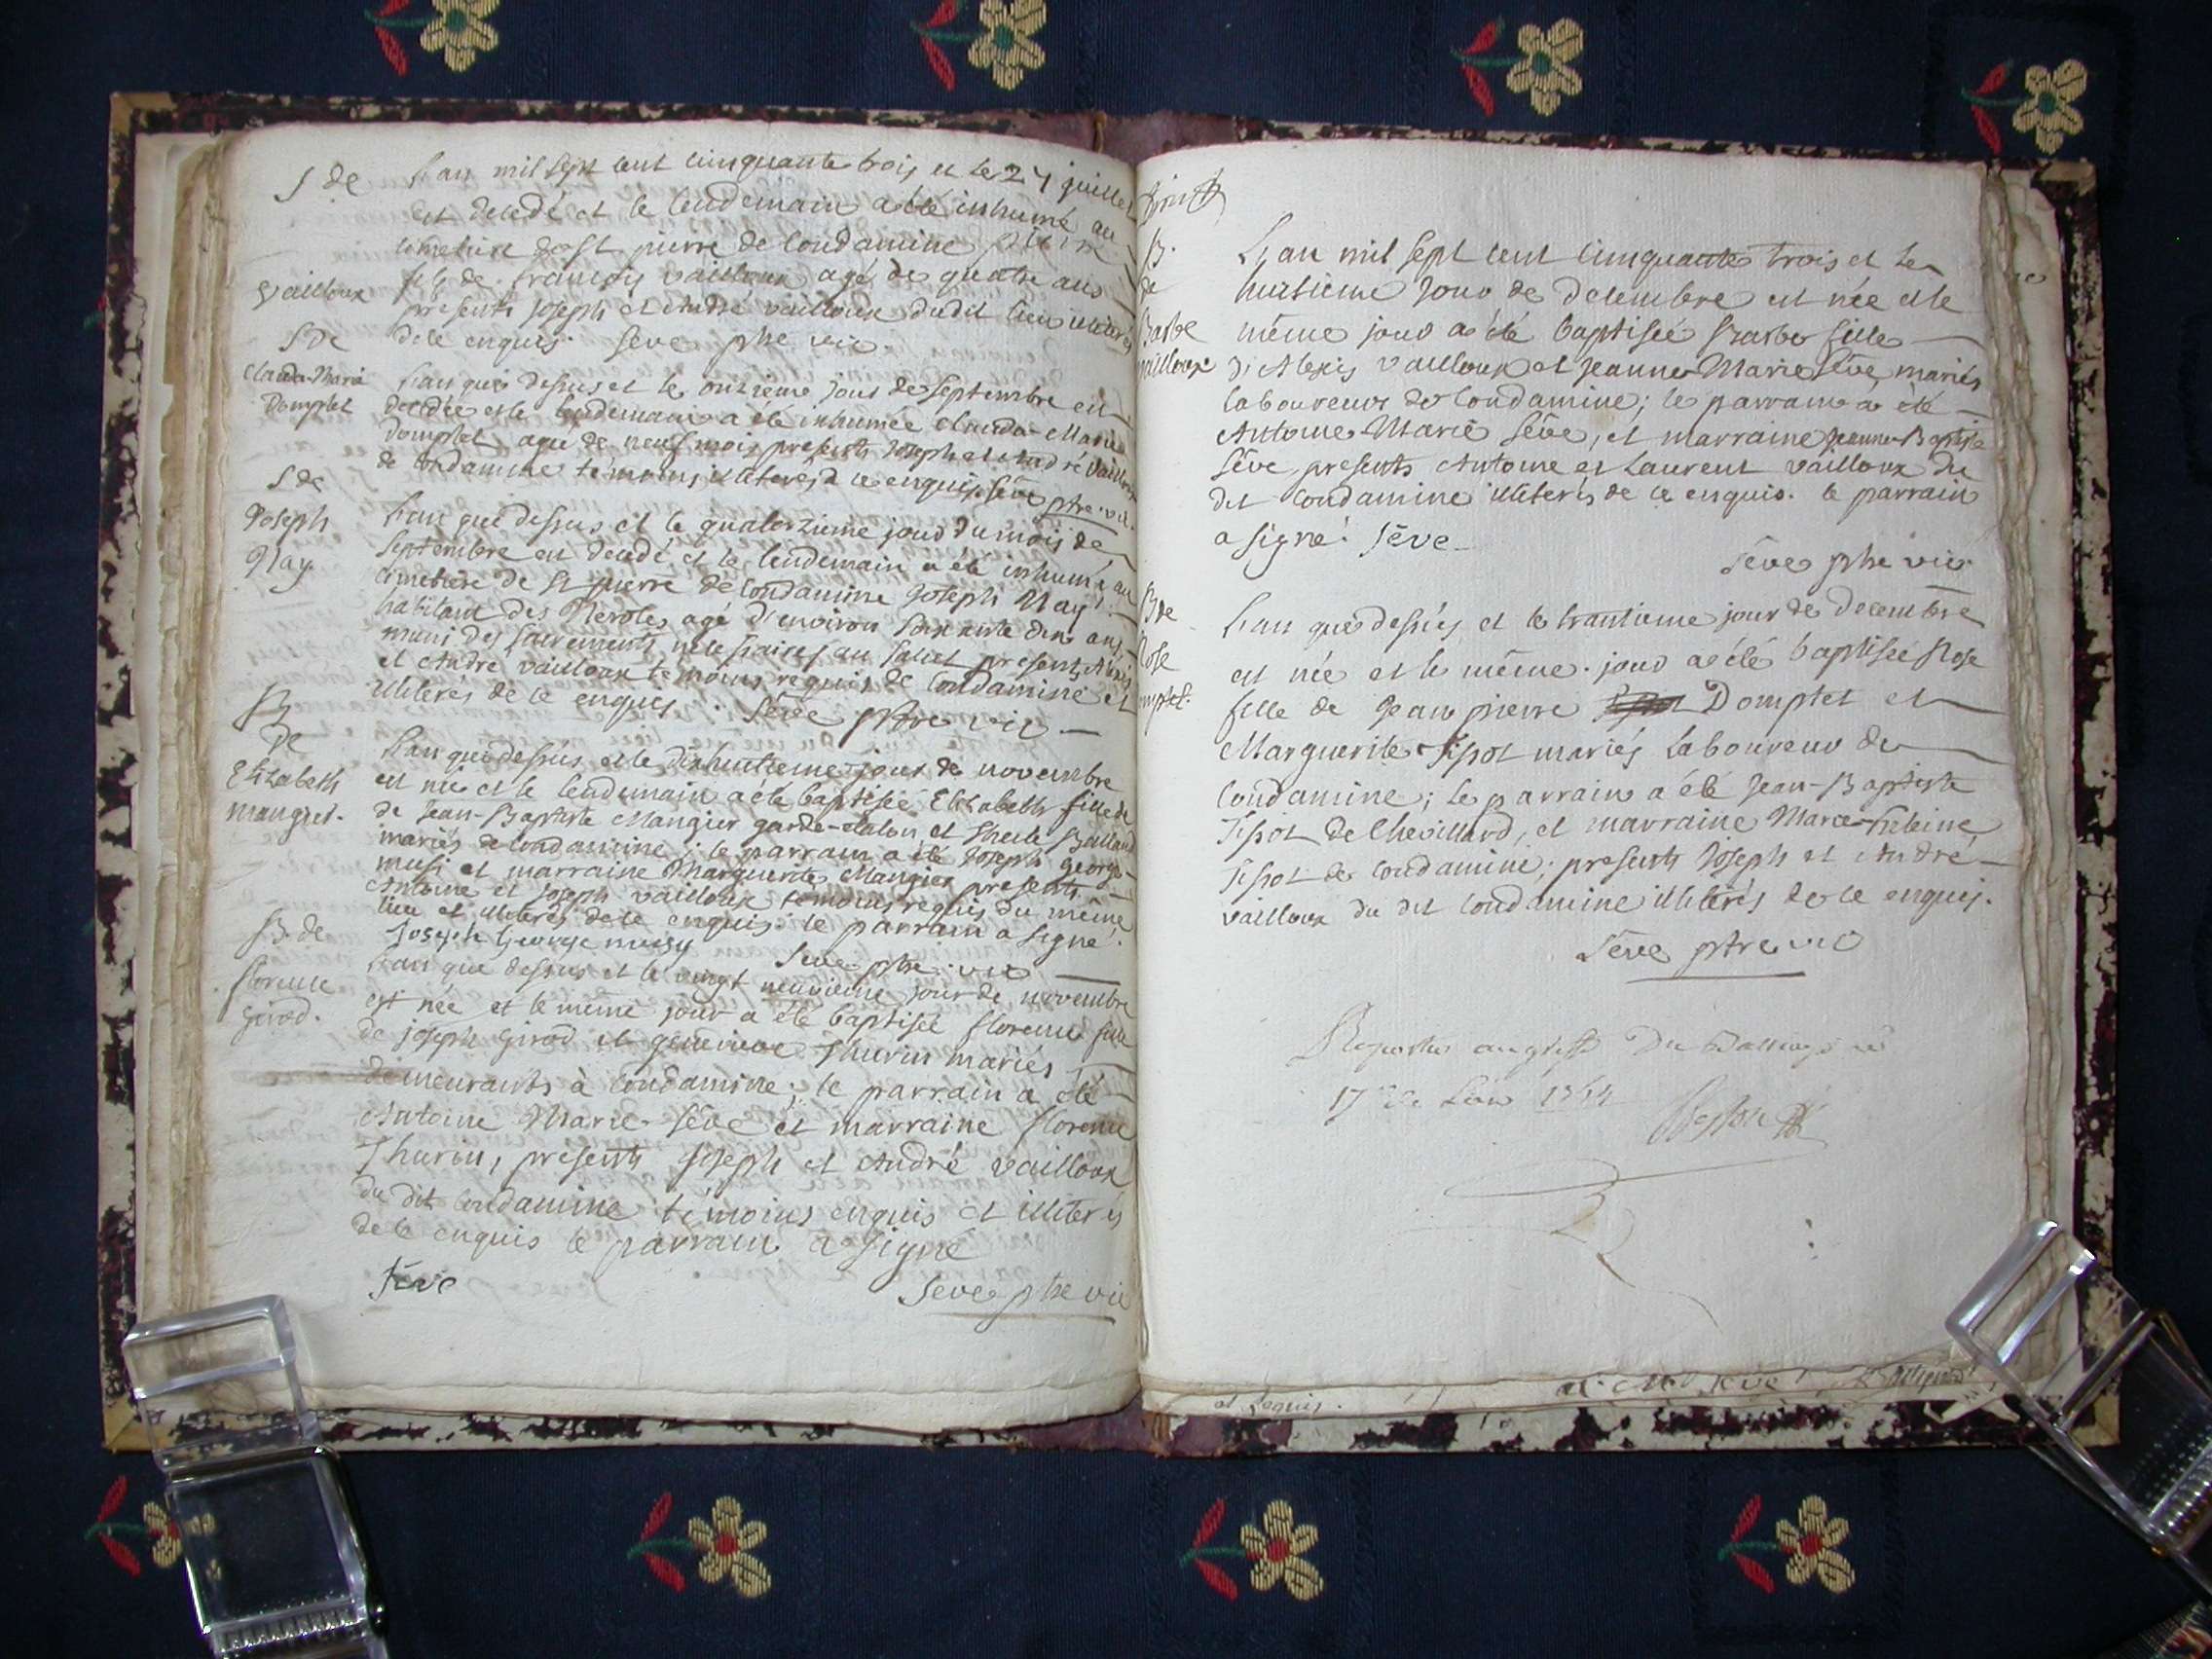 S de
L'an mil sept cent cinquante trois et le 27 juillet
est decedé et le lendemain a été inhumé au
cimetiere de St pierre de Condamine pierre
Vailloux
fils de françois vailloux agé de quatre ans
présents Joseph et André vailloux dudit lieu illiterés
de ce enquis. Seve ptre vic.
S De
Clauda-Marie
Domptet
L'an que dessus et le onzieme jour de septembre est
decedée et le lendemain a été inhumée Clauda-Marie
Domptet agée de neuf mois presents Joseph et André Vailloux
de Condamine temoins illiterés de ce enquis. Sève ptre. vic.
S de
Joseph
Nay
L'an que dessus et le quatorzieme jour du mois de
Septembre est decedé et le lendemain a été inhumé au
cimetiere de St pierre de Condamine Joseph Nay
habitant des Neroles agé d'environ soixante dix ans,
muni des sacrements necessaires au salut presents Alexis
et André vailloux temoins requis de Condamine et
illiterés de ce enquis. Sève ptre vic
B
De
Elizabeth
mangier.
L'an que dessus et le dixhuitieme jour de novembre
est née et le lendemain a été baptisée Elizabeth fille de
de Jean-Baptiste Mangier garde-etalon et Balland
mariés de Condamine; le parrain a été Joseph George
musi et marraine Marguerite Mangier presents
Antoine et Joseph vailloux temoins requis du même
lieu et illiterés de ce enquis. le parrain a signé.
Joseph George musy
Seve ptre vic
B de
florence
Girod.
L'an que dessus et le vingt neuvieme jour de novembre
est née et le même jour a été baptisée florence fille
de joseph Girod et genevieve Thurin mariés
demeurants à Condamine; le parrain a été
Antoine Marie Sève et marraine florence
Thurin, presents Joseph et André vailloux
du dit Condamine témoins enquis et illiterés
de ce enquis le parrain a signé
Sève
Seve ptre vic
B.
de
Barbe
vailloux
L'an mil sept cent cinquante trois et le
huitieme Jour de Decembre est née et le
même jour a été baptisée Barbe fille
d'Alexis Vailloux et Jeanne Marie Sève mariés
laboureurs de Condamine; le parrain a été
Antoine-Marie Sève, et marraine Jeanne-Baptiste
Sève, presents Antoine et Laurent vailloux du
dit Condamine illiterés de ce enquis. le parrain
a signé. Sève
Sève ptre vic
B de
Rose
mptet.
L'an que dessus et le trantieme jour de Decembre
est née et le même jour a été baptisée Rose
fille de Jean pierre Domptet et
Marguerite Tipot mariés laboureur de
Condamine; le parrain a été Jean-Baptiste
Tipot de Chevillard, et marraine Marie-heleine
Tipot de Condamine; presents Joseph et André
vailloux du dit Condamine illiterés de ce enquis.
Sève ptre vic
17